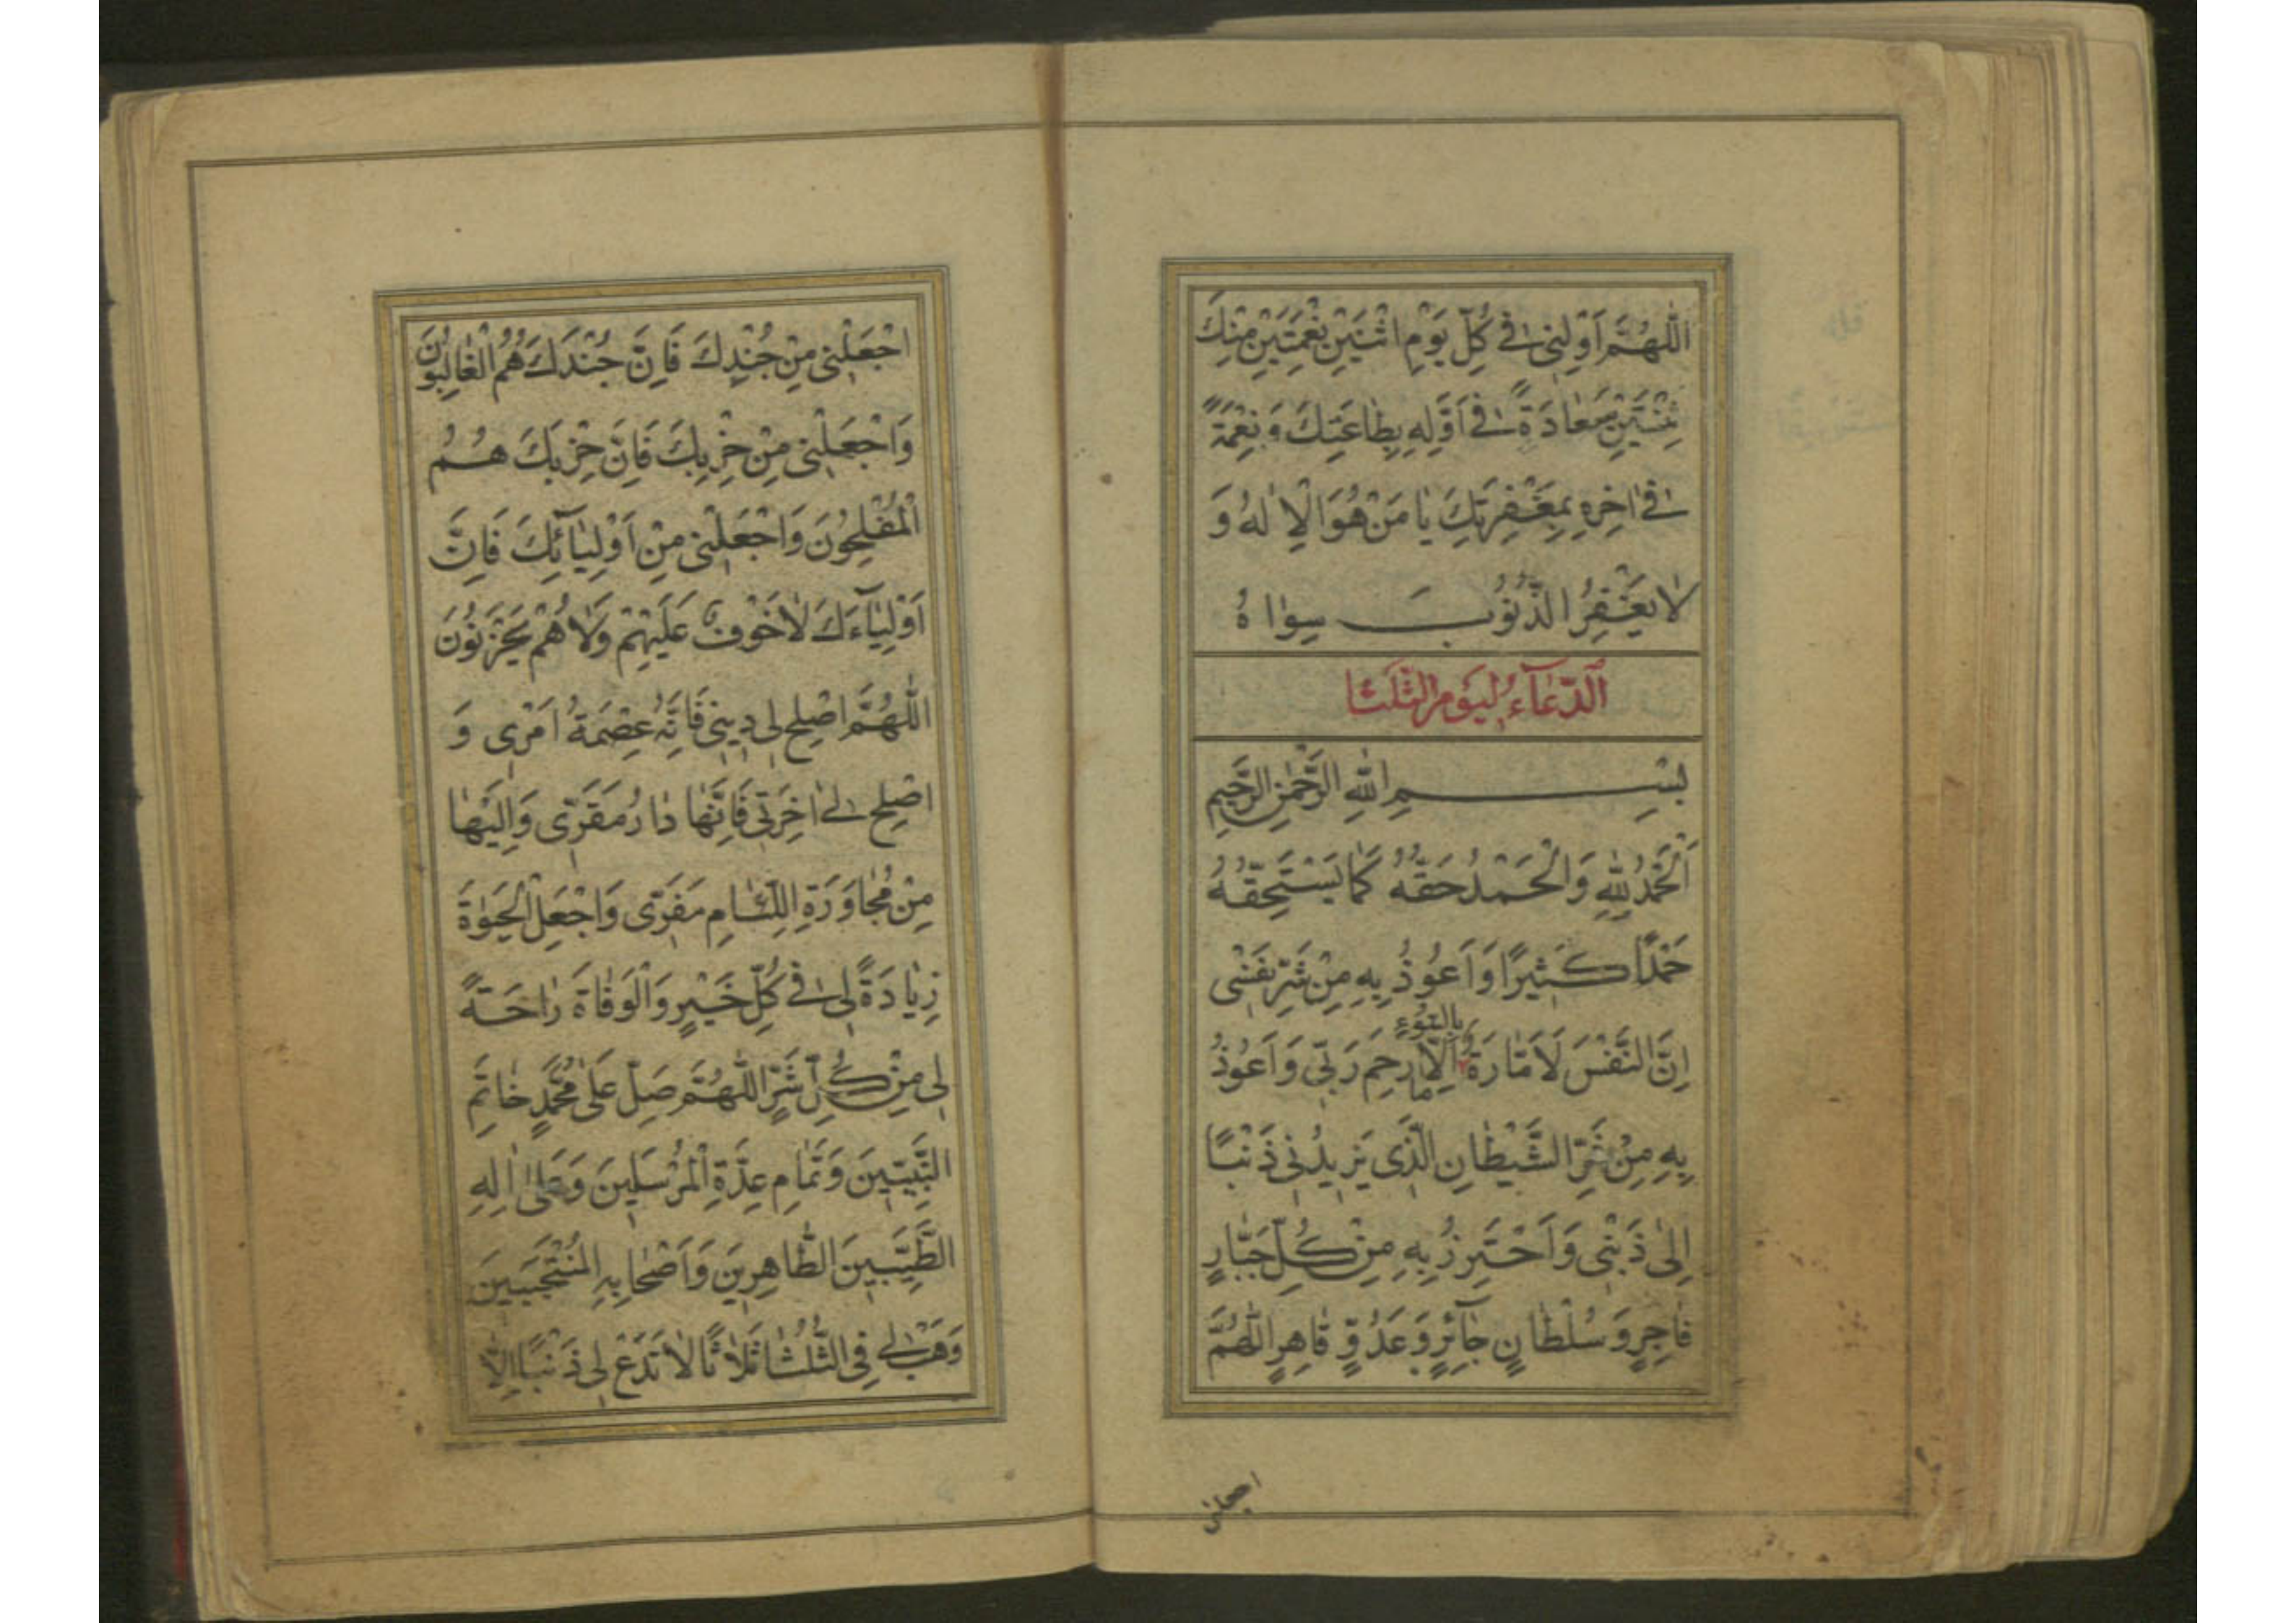 اَللّٰهُمَّ اَوْلِنى فى كُلِّ يَوْمِ اثْنَيْنِ نِعْمَتَيْنِ مِنْكَ
ثِنْتَيْنِ سَعادَةً فى اَوَّلِهِ بِطاعَتِكَ وَ نِعْمَةً
فى اخِرِهِ بِمَغْفِرَتِكَ يا مَنْ هُوَ الْاِلٰهُ وَ
لا يَغْفِرُ الذُّنُوبَ سِواهُ
اَلدُّعآءُ لِيَوْمِ الثَّلَثا
بِسْمِ اللّٰهِ الرَّحْمٰنِ الرَّحيمِ
اَلْحَمْدُ لِلّٰهِ وَ الْحَمْدُ حَقُّهُ كَما يَسْتَحِقُّهُ
حَمْدًا كَثيرًا وَ اَعُوذُ بِهِ مِنْ شَرِّ نَفْسى
اِنَّ النَّفْسَ لَاَمّارَةٌ بِالسُّوءِ اِلّا ما رَحِمَ رَبّى وَ اَعُوذُ
بِهِ مِنْ شَرِّ الشَّيْطانِ الَّذى يَزيدُنى ذَنْبًا
اِلىٰ ذَنْبى وَ اَحْتَرِزُ بِهِ مِنْ كُلِّ جَبّارٍ
فاجِرٍ وَ سُلْطانٍ جآئِرٍ وَ عَدُوٍّ قاهِرٍ اَللّٰهُمَّ
اجعلنى
اجْعَلْنى مِنْ جُنْدِكَ فَاِنَّ جُنْدَكَ هُمُ الْغالِبُونَ
وَ اجْعَلْنى مِنْ حِزْبِكَ فَاِنَّ حِزْبَكَ هُمُ
الْمُفْلِحُونَ وَ اجْعَلْنى مِنْ اَوْلِيآئِكَ فَاِنَّ
اَوْلِيآءَكَ لا خَوْفٌ عَلَيْهِمْ وَلا هُمْ يَحْزَنُونَ
اَللّٰهُمَّ اصْلِح لى دينى فَاِنَّهُ عِصْمَةُ اَمْرى وَ
اصْلِح لى اخِرَتى فَاِنَّها دارُ مَقَرّى وَ اِلَيْها
مِنْ مُجاوَرَةِ اللِّئامِ مَفَرّى وَ اجْعَلِ الْحَيٰوةَ
زِيادَةً لى فى كُلِّ خَيْرٍ وَ الْوَفاةَ راحَةً
لى مِنْ كُلِّ شَرٍّ اَللّٰهُمَّ صَلِّ عَلىٰ مُحَمَّدٍ خاتَمِ
النَّبِيّينَ وَ تَمامِ عِدَّةِ الْمُرْسَلينَ وَ عَلىٰ الِهِ
الطَّيِّبينَ الطّاهِرينَ وَ اَصْحابِهِ الْمُنْتَجَبينَ
وَهَبْ لى فِى الثُّلُثا ثَلاثًا لا تَدَعْ لى ذَنْبًا اِلّا